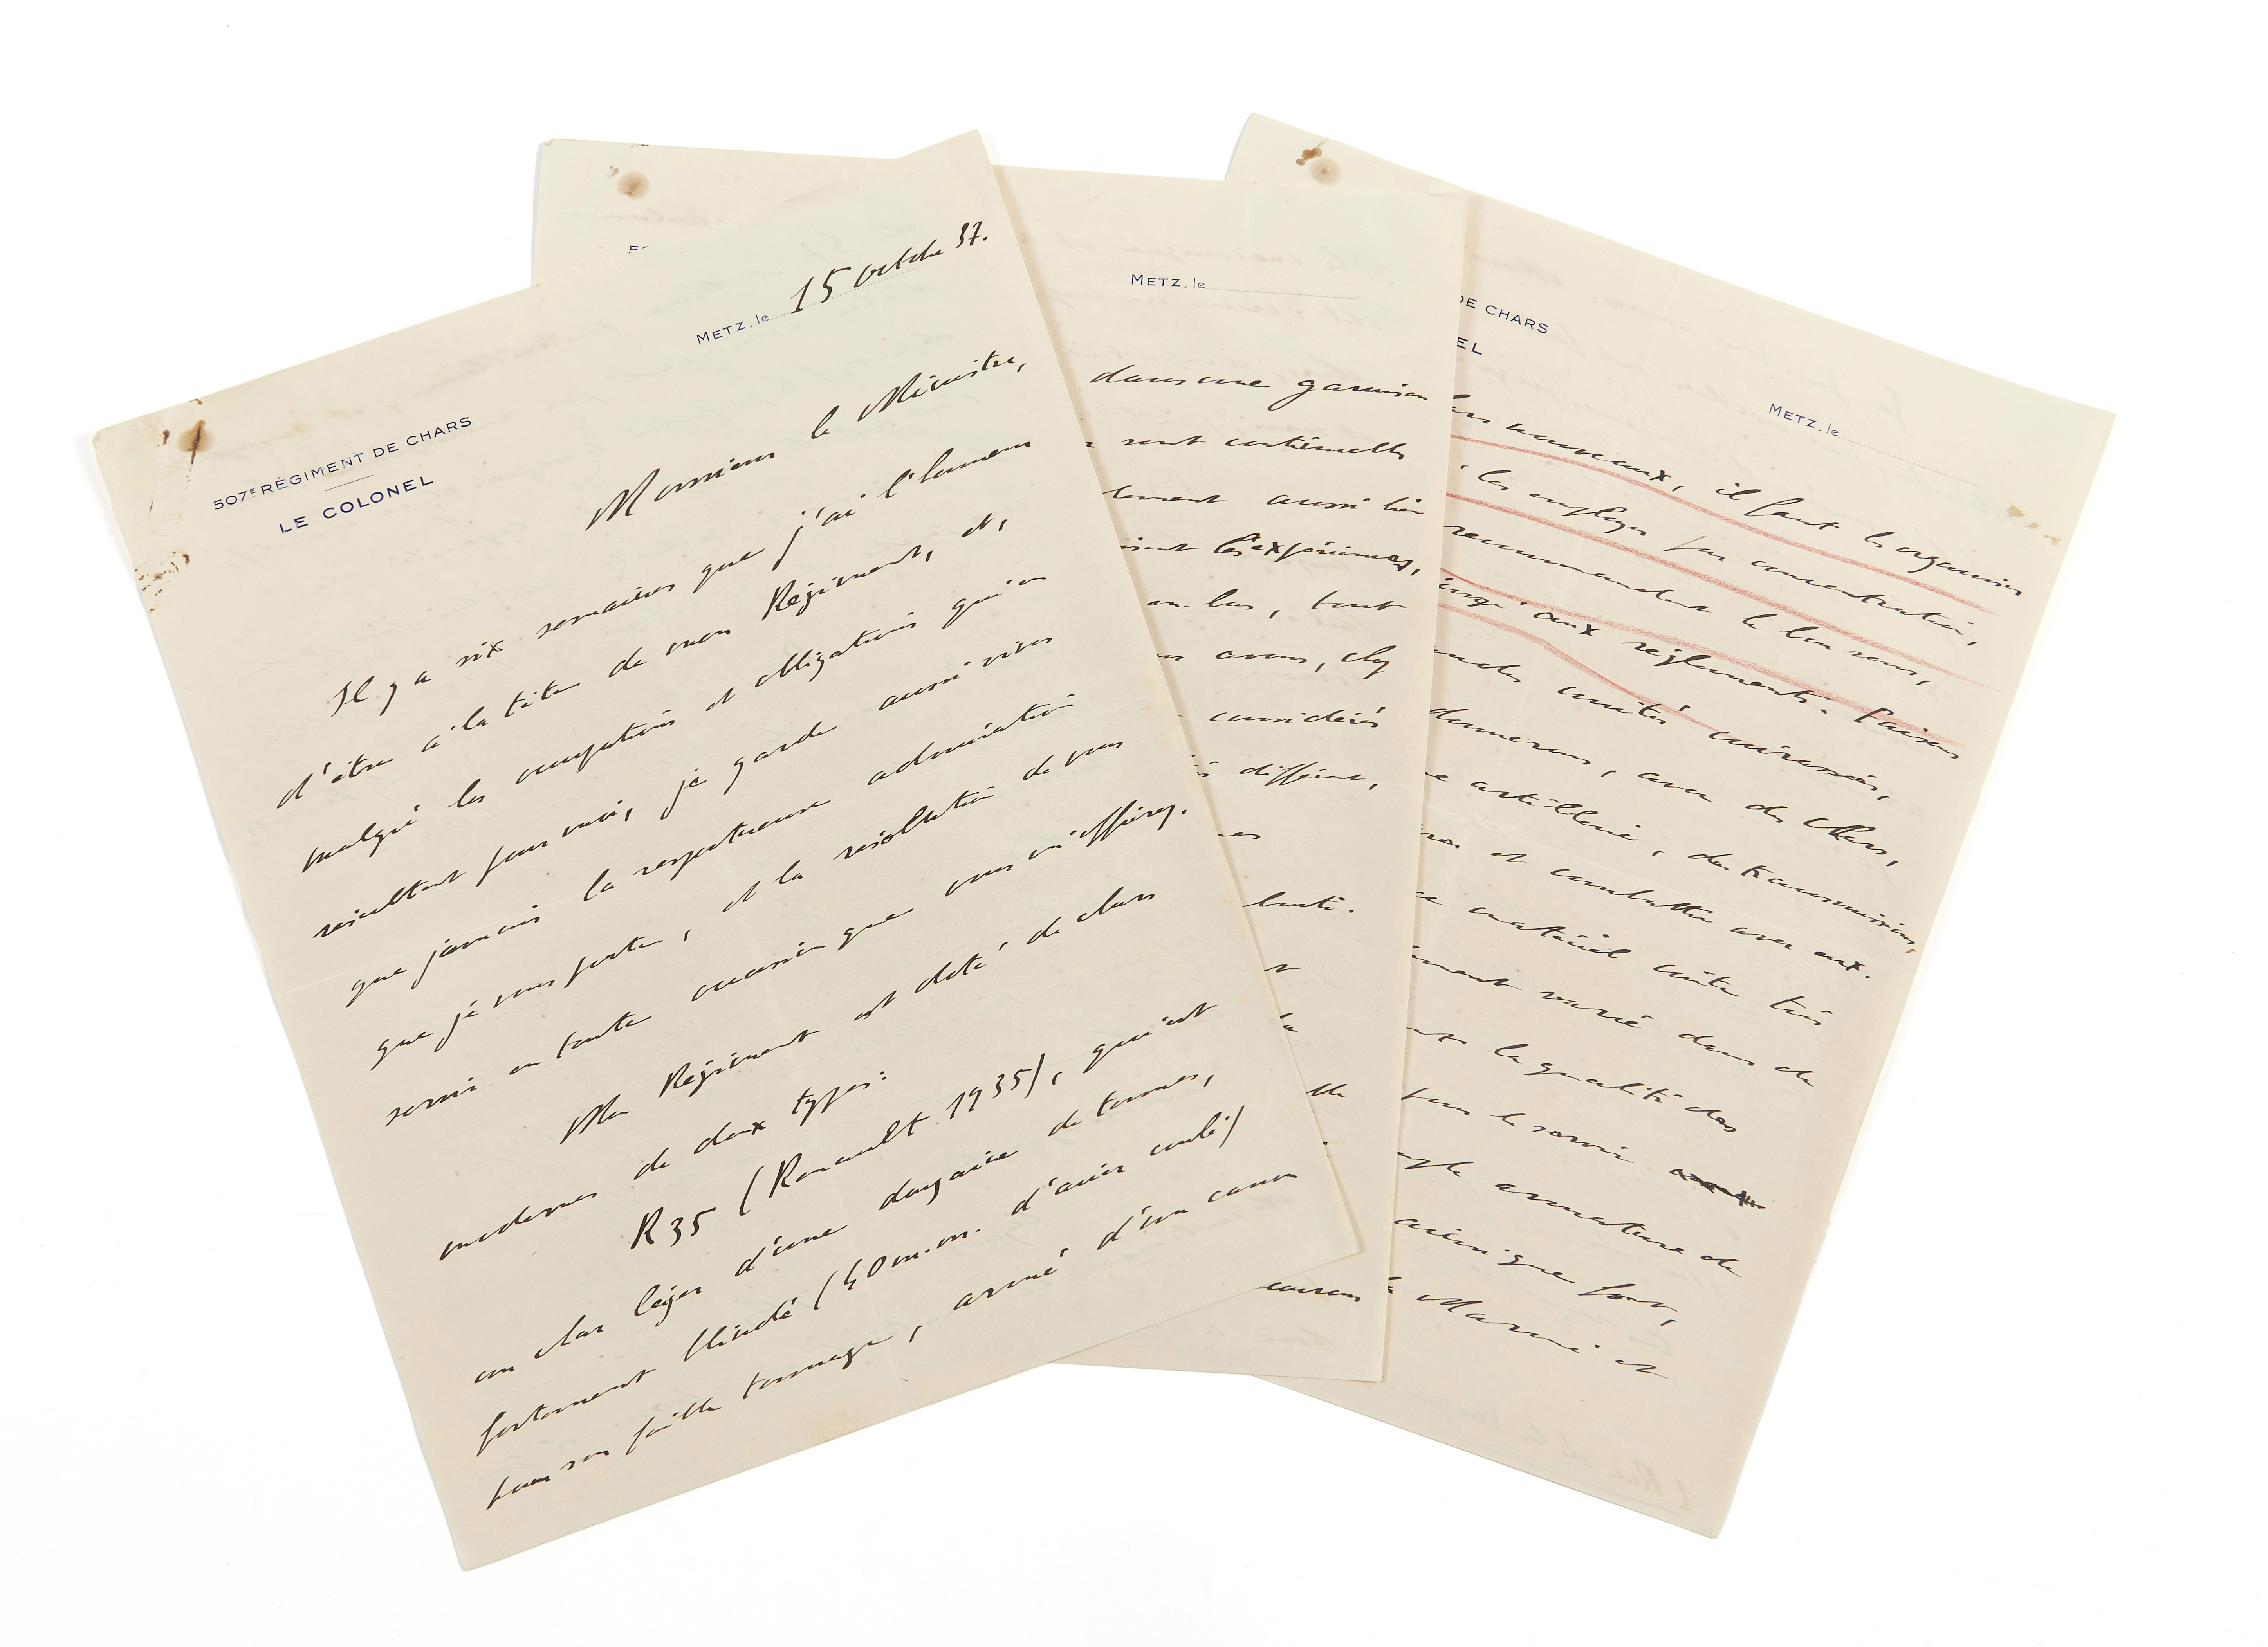 507E RÉGIMENT DE CHARS
LE COLONEL
METZ, le 15 octobre 37.
Monsieur le Ministre,
Il y a six semaines que j'ai l'honneur
d'être à la tête de mon Régiment, et,
malgré les occupations et obligations qui en
résultent pour moi, je garde aussi vives
que jamais la respectueuse admiration
que je vous porte, et la résolution de vous
servir en toute occasion que vous m'offrirez.
Mon Régiment est doté de chars
modernes de deux types:
R35 (Renault 1935), qui est
un char léger d'une douzaine de tonnes,
fortement blindé (40 m.m. d'acier coulé)
pour son faible tonnage, armé d'un canon
METZ, le
dans une garnison
sont continuelles
aussi bien
les expériences,
en-bas, tout
avons, chez
considérés
différent,
METZ, le
DE CHARS
EL
nouveaux, il faut les organiser
les employer par concentration,
recommandent le bon sens,
jusqu'aux règlements. Faisons
unités cuirassées,
donnerons, avec des chars,
artillerie, des transmissions,
et combattre avec eux.
matériel coûte très
varié dans de
la qualité des
pour le servir
armature de
ainsi que font,
la Marine et